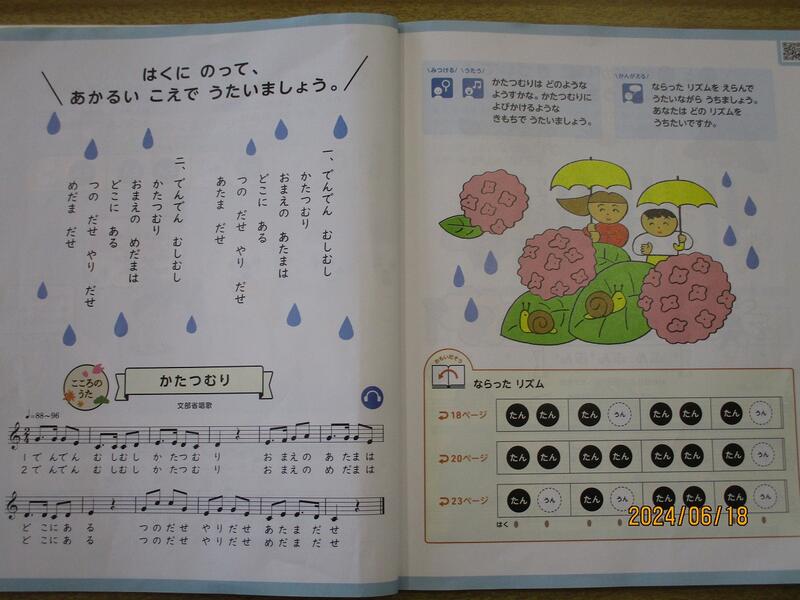 はくに のって、
あかるい こえで うたいましょう。
一、でんでん むしむし
かたつむり
おまえの あたまは
どこに ある
つの だせ やり だせ
あたま だせ
二、でんでん むしむし
かたつむり
おまえの めだまは
どこに ある
つの だせ やり だせ
めだま だせ
こころの
うた
かたつむり
文部省唱歌
♩=88〜96
2
4
1 で んでん む しむし か たつむ り お まえの あ たまは
2 で んでん む しむし か たつむ り お まえの め だまは
ど こに あ る つのだせ やりだせ あ たま だ せ
ど こに あ る つのだせ やりだせ め だま だ せ
みつける うたう
かたつむりは どのような
ようすかな。かたつむりに
よびかけるような
きもちで うたいましょう。
かんがえる
ならった リズムを えらんで
うたいながら うちましょう。
あなたは どの リズムを
うちたいですか。
おもいだそう
ならった リズム
18ページ たん たん たん うん たん たん たん うん
20ページ たん たん たん たん たん たん たん うん
23ページ たん うん たん うん たん たん たん うん
はく
2024/06/18